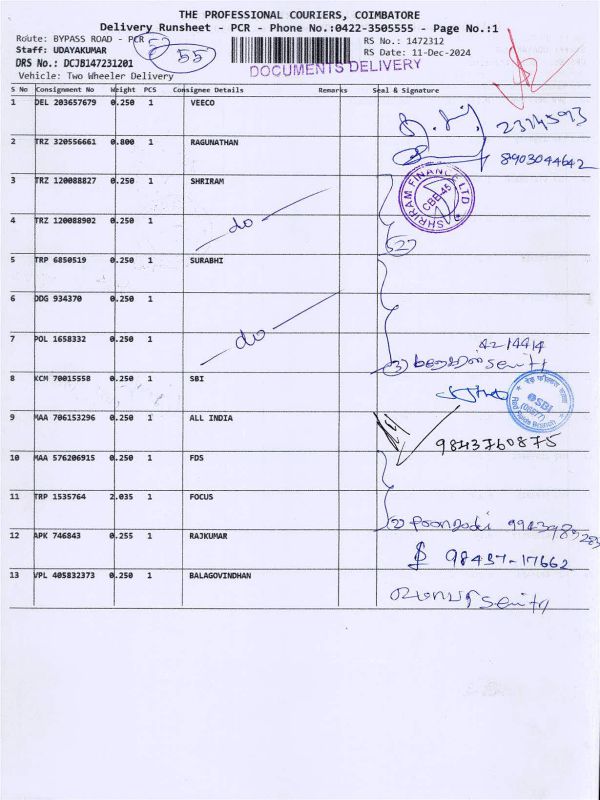 THE PROFESSIONAL COURIERS, COIMBATORE
Delivery Runsheet - PCR - Phone No.:0422-3505555 - Page No.:1
Route: BYPASS ROAD - PCR
RS No.: 1472312
Staff: UDAYAKUMAR
55
RS Date: 11-Dec-2024
DRS No.: DCJB147231201
DOCUMENTS DELIVERY
Vehicle: Two Wheeler Delivery
S No Consignment No Weight PCS Consignee Details Remarks Seal & Signature
1 DEL 203657679 0.250 1 VEECO
2 TRZ 320556661 0.800 1 RAGUNATHAN
8903044642
3 TRZ 120088827 0.250 1 SHRIRAM
SHRIRAM FINANCE LTD
CBE-45
4 TRZ 120088902 0.250 1
do
5 TRP 6850519 0.250 1 SURABHI
6 DDG 934370 0.250 1
do
7 POL 1658332 0.250 1
8 KCM 70015558 0.250 1 SBI
SBI
9 MAA 706153296 0.250 1 ALL INDIA
9843760875
10 MAA 576206915 0.250 1 FDS
11 TRP 1535764 2.035 1 FOCUS
12 APK 746843 0.255 1 RAJKUMAR
98437-17662
13 VPL 405832373 0.250 1 BALAGOVINDHAN